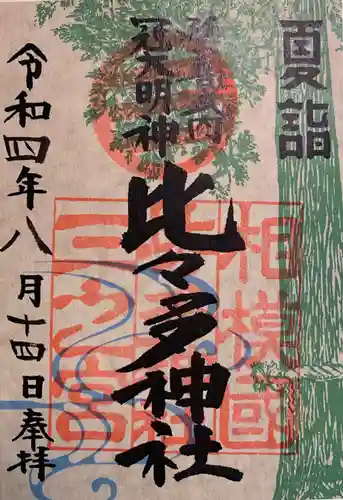 夏詣
冠大明神
比々多神社
相模國
三之宮
令和四年八月十四日奉拝